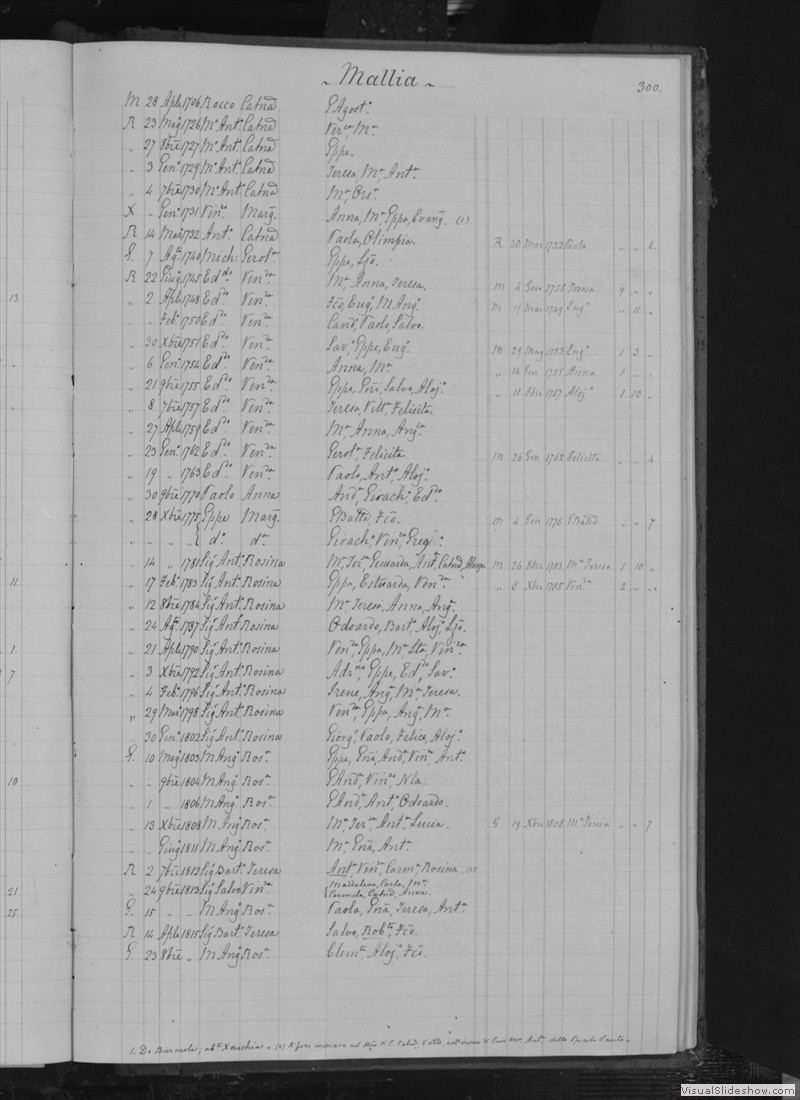 ~ Mallia ~
300.
M 28 Aple 1706 Rocco Catnd G Agosto.
R 23 Mago 1726 Mo Anto. Catnd Vera. Ma.
„ 27 8bre 1727 Mo Anto. Catnd Gppa.
„ 3 Geno. 1729 Mo Anto. Catnd Teresa, Ma. Anta.
„ 4 7bre 1730 Mo Anto. Catnd Ma. Ors.
X „ Geno. 1731 Vinzo. Marg. Anna, Ma. Gppa, Evang. (1)
R 14 Marzo 1732 Anto. Catnd Paola, Olimpia. R 30 Mar 1732 Paola „ „ 8.
G. 7 Ago. 1740 Mich: Gerola Gppe, Ljo.
R 22 Giug 1745 Eddo Venda. Ma. Anna, Teresa. M 4 Gen 1755 Teresa 9 „ „
„ 2 Aple 1748 Eddo Venda. Fco, Eugo, M Ango. M 17 Mar 1749 Eugo „ 11 „
„ „ Febo. 1750 Eddo. Venda. Cand, Paolo, Salvo.
„ 30 Xbre 1751 Eddo. Venda. Savo. Gppe, Eugo. M 29 Mag 1753 Eugo 1 3 „
„ 6 Geno. 1754 Eddo. Venda. Anna, Ma. „ 14 Gen 1755 Anna 1 „ „
„ 21 9bre 1755 Eddo. Venda. Gppe, Gni, Salvo, Alojo. „ 11 8bre 1757 Alojo 1 10 „
„ 8 7bre 1757 Eddo. Venda. Teresa, Vitta, Felicita.
„ 27 Aple 1759 Eddo. Venda. Ma. Anna, Anga.
„ 23 Geno. 1762 Eddo. Venda. Gerola, Felicita M 26 Gen 1762 Felicita „ „ 4
„ 19 „ 1763 Eddo. Venda. Paolo, Anto. Alojo.
„ 30 9bre 1770 Paolo Anna Anda, Gioacho, Eddo
„ 28 Xbre 1775 Gppe Marg. GBatta, Fco. M 4 Gen 1776 GBatta „ „ 7
„ „ „ do. da. Gioacho, Vinzo, Greg.
„ 14 „ 1781 Sigr Anto. Rosina M 26 8bre 1783 Ma Teresa 1 10 „
„ 17 Febo. 1783 Sigr Anto. Rosina Gppa, Estuarda, Venda. „ 8 Xbre 1785 Venda 2 „ „
„ 12 8bre 1784 Sigr Anto. Rosina Ma. Teresa, Anna, Anga.
„ 24 Ago. 1787 Sigr Anto. Rosina Odoardo, Barto, Alojo, Ljo.
„ 21 Aple 1790 Sigr Anto. Rosina Venda, Gppa, Ma Sta, Vinza
„ 3 Xbre 1792 Sigr Anto. Rosina Adrno, Gppe, Eddo Savo.
„ 4 Febo. 1796 Sigr Anto. Rosina Irene, Anga, Ma. Teresa.
„ 29 Marzo 1798 Sigr Anto. Rosina Venda, Gppa, Anga, Ma.
„ 30 Geno. 1802 Sigr Anto. Rosina Giorgo, Paolo, Felice, Alojo.
G. 10 Mago 1803 M Ango Rosa. Gppe, Gni, Anda, Vinzo, Anto.
„ „ 9bre 1804 M Ango. Rosa. G Anda, Vinzo, Nla.
„ 1 „ 1806 M Ango. Rosa. G Anda, Anto, Odoardo.
„ 13 Xbre 1808 M Ango Rosa. Ma. Tersa. Anta, Lucia. G 19 Xbre 1808 Ma Teresa „ „ 7
„ „ Giug 1811 M Ango Rosa. Ma. Gna, Anta.
R 2 7bre 1812 Sigr Barto. Teresa Anto, Vinzo, Carmo, Rosina. (2)
„ 24 9bre 1813 Sigr Salvo Vinza Maddalena, Carla, Ma. Carmela, Catnd, Anna.
G. 15 „ „ M Ango Rosa. Paola, Gna, Teresa, Anta.
R 14 Aple 1815 Sigr Barto. Teresa Salvo, Robto, Fco.
G. 23 8bre „ M Ango Rosa. Clemte, Alojo, Fco.
13
11
1.
7
10
21
25
1. Da Burmola
VisualSlideshow.com